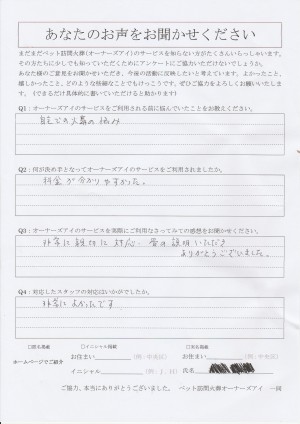 あなたのお声をお聞かせください
まだまだペット訪問火葬(オーナーズアイ)のサービスを知らない方がたくさんいらっしゃいます。
その方たちに少しでも知っていただくためにアンケートにご協力いただけないでしょうか。
あなた様のご意見をお聞かせいただき、今後の活動に反映したいと考えています。よかったこと、
嬉しかったこと、どのような些細なことでもけっこうです。ぜひご協力をよろしくお願いいたしま
す。(できるだけ具体的に書いていただけると助かります!)
Q1:オーナーズアイのサービスをご利用される前に悩んでいたことをお教えください。
自宅での火葬の悩み
Q2:何が決め手となってオーナーズアイのサービスをご利用されましたか。
料金が分かりやすかった。
Q3:オーナーズアイのサービスを実際にご利用なさってみての感想をお聞かせください。
非常に親切に対応、骨の説明いただき
ありがとうございました。
Q4:対応したスタッフの対応はいかがでしたか。
非常によかったです
□匿名掲載 □イニシャル掲載 □実名掲載
ホームページでご紹介
お住まい (例:中央区) お住まい (例:中央区)
イニシャル (例:J.H) 氏名
ご協力、本当にありがとうございました。 ペット訪問火葬オーナーズアイ 一同